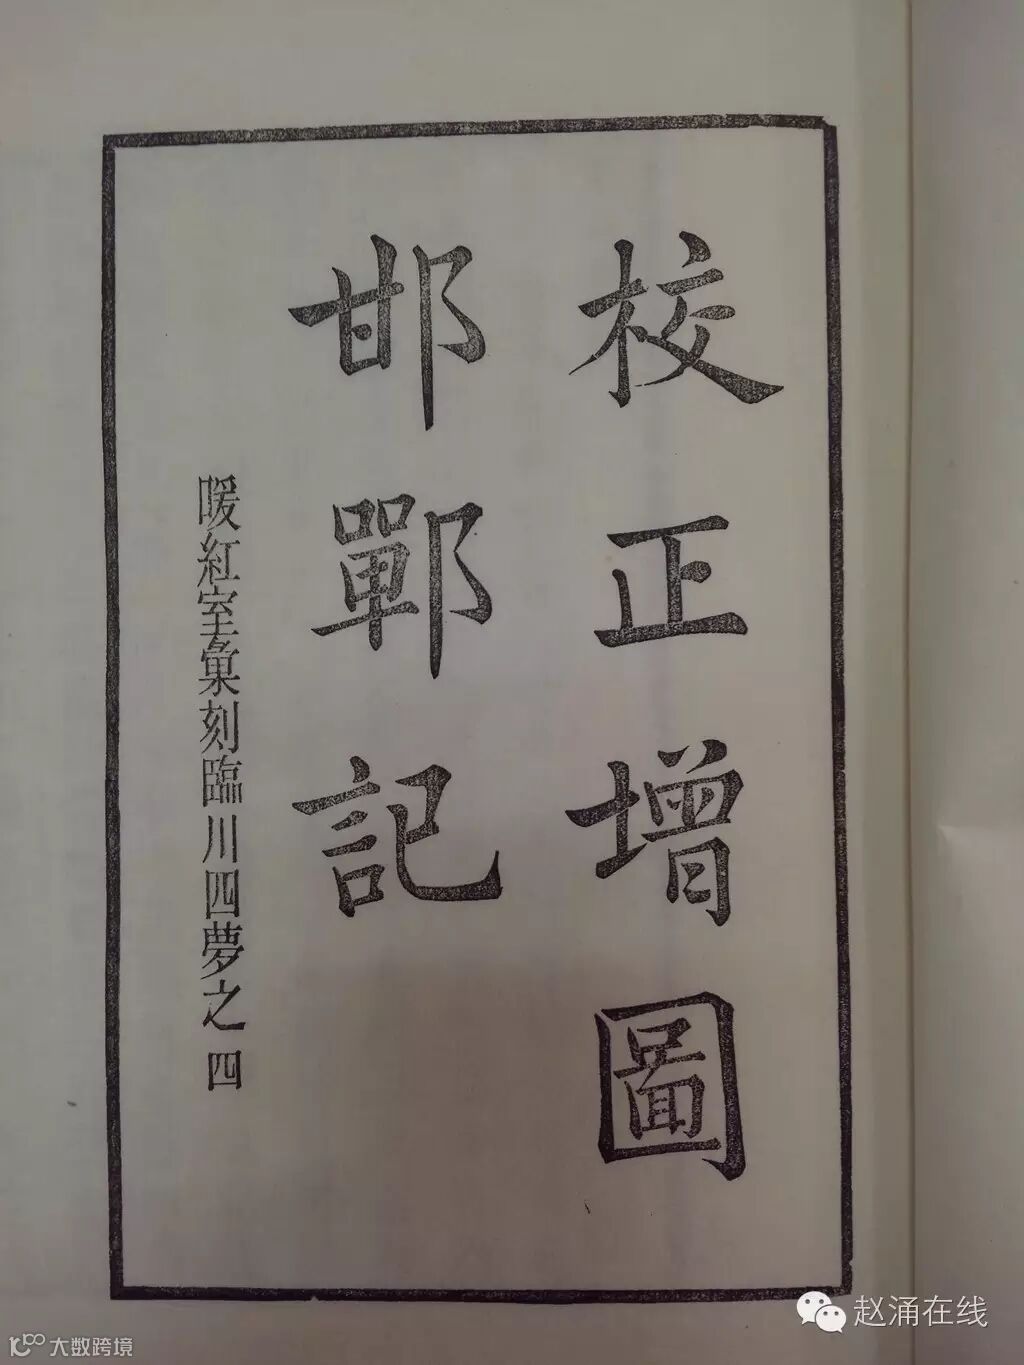 校正增圖
邯鄲記
暖紅室彙刻臨川四夢之四
赵涌在线
大数跨境